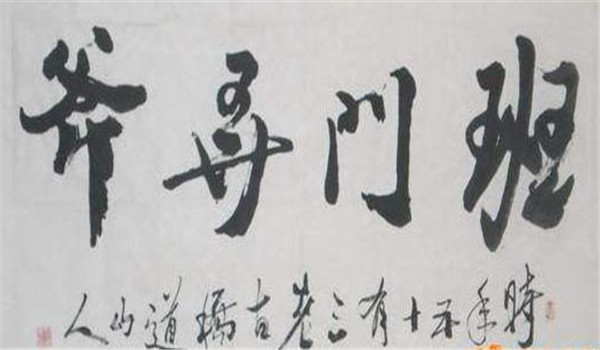 班門弄斧
時年五十有三老古橋道山人